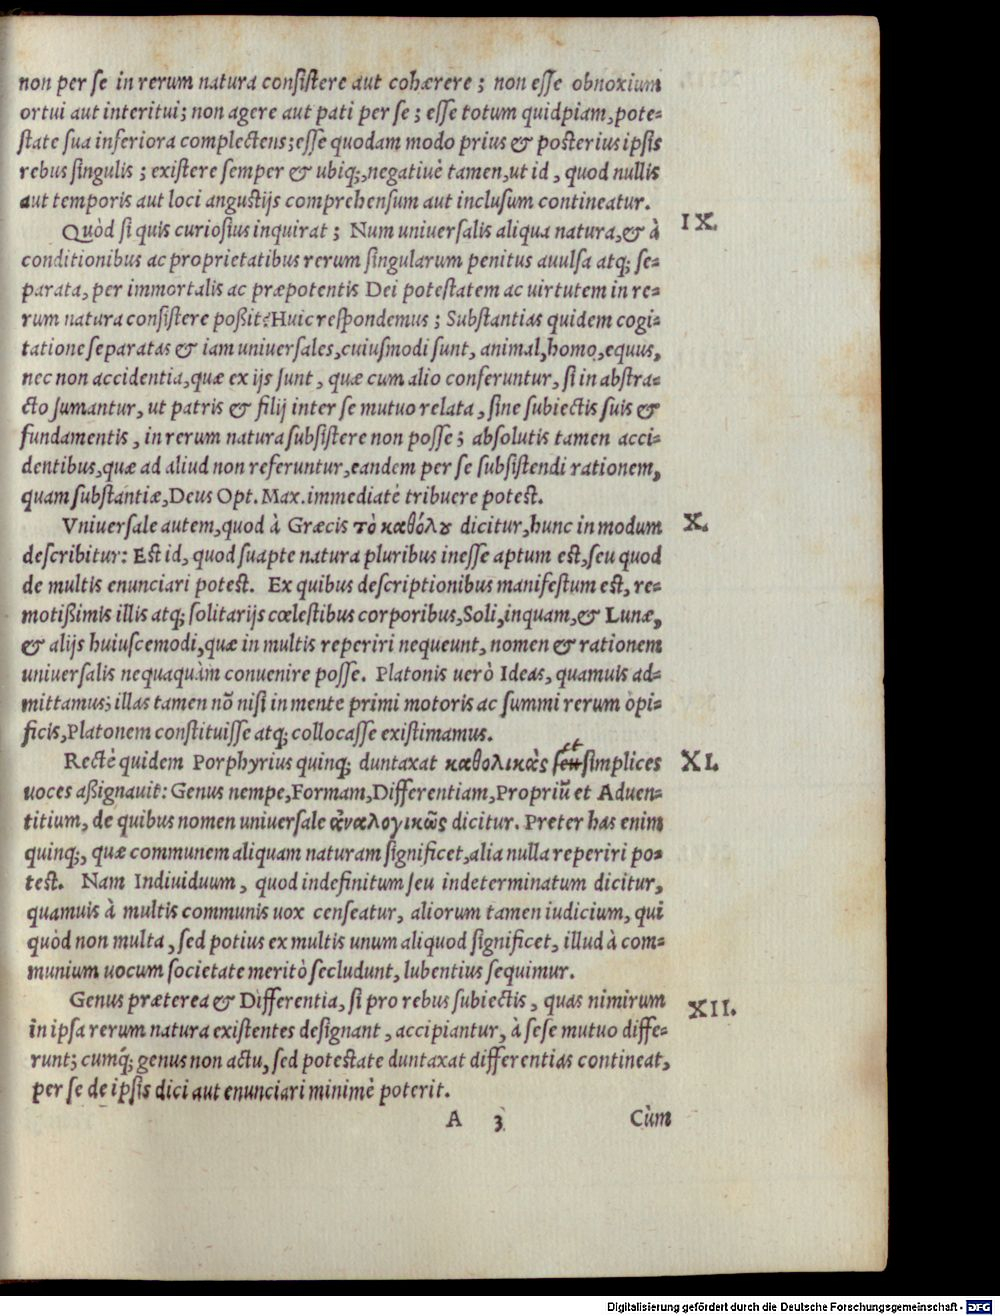 non per se in rerum natura consistere aut cohærere; non esse obnoxium
ortui aut interitui; non agere aut pati per se; esse totum quidpiam, pote=
state sua inferiora complectens; esse quodam modo prius & posterius ipsis
rebus singulis; existere semper & ubiq;, negativè tamen, ut id, quod nullis
aut temporis aut loci angustijs comprehensum aut inclusum contineatur.
IX.
Quòd si quis curiosius inquirat; Num universalis aliqua natura, & à
conditionibus ac proprietatibus rerum singularum penitus auulsa atq; se=
parata, per immortalis ac præpotentis Dei potestatem ac uirtutem in re=
rum natura consistere poßit? Huic respondemus; Substantias quidem cogi=
tatione separatas & iam universales, cuiusmodi sunt, animal, homo, equus,
nec non accidentia, quæ ex ijs sunt, quæ cum alio conferuntur, si in abstra=
cto sumantur, ut patris & filij inter se mutuo relata, sine subiectis suis &
fundamentis, in rerum natura subsistere non posse; absolutis tamen acci=
dentibus, quæ ad aliud non referuntur, eandem per se subsistendi rationem,
quam substantiæ, Deus Opt. Max. immediatè tribuere potest.
X.
Vniuersale autem, quod à Græcis τὸ καθόλȣ dicitur, hunc in modum
describitur: Est id, quod suapte natura pluribus inesse aptum est, seu quod
de multis enunciari potest. Ex quibus descriptionibus manifestum est, re=
motißimis illis atq; solitarijs cœlestibus corporibus, Soli, inquam, & Lunæ,
& alijs huiuscemodi, quæ in multis reperiri nequeunt, nomen & rationem
universalis nequaquàm convenire posse. Platonis uerò Ideas, quamuis ad=
mittamus; illas tamen nō nisi in mente primi motoris ac summi rerum òpi=
ficis, Platonem constituisse atq; collocasse existimamus.
XI.
Rectè quidem Porphyrius quinq; duntaxat καθολικὰς seu et simplices
uoces aßignauit: Genus nempe, Formam, Differentiam, Propriū et Aduen=
titium, de quibus nomen universale ἀναλογικῶς dicitur. Preter has enim
quinq;, quæ communem aliquam naturam significet, alia nulla reperiri po=
test. Nam Individuum, quod indefinitum seu indeterminatum dicitur,
quamuis à multis communis uox censeatur, aliorum tamen iudicium, qui
quòd non multa, sed potius ex multis unum aliquod significet, illud à com=
munium uocum societate meritò secludunt, lubentius sequimur.
XII.
Genus præterea & Differentia, si pro rebus subiectis, quas nimirum
in ipsa rerum natura existentes designant, accipiantur, à sese mutuo diffe=
runt; cumq́; genus non actu, sed potestate duntaxat differentias contineat,
per se de ipsis dici aut enunciari minimè poterit.
A 3 Cùm
Digitalisierung gefördert durch die Deutsche Forschungsgemeinschaft - DFG